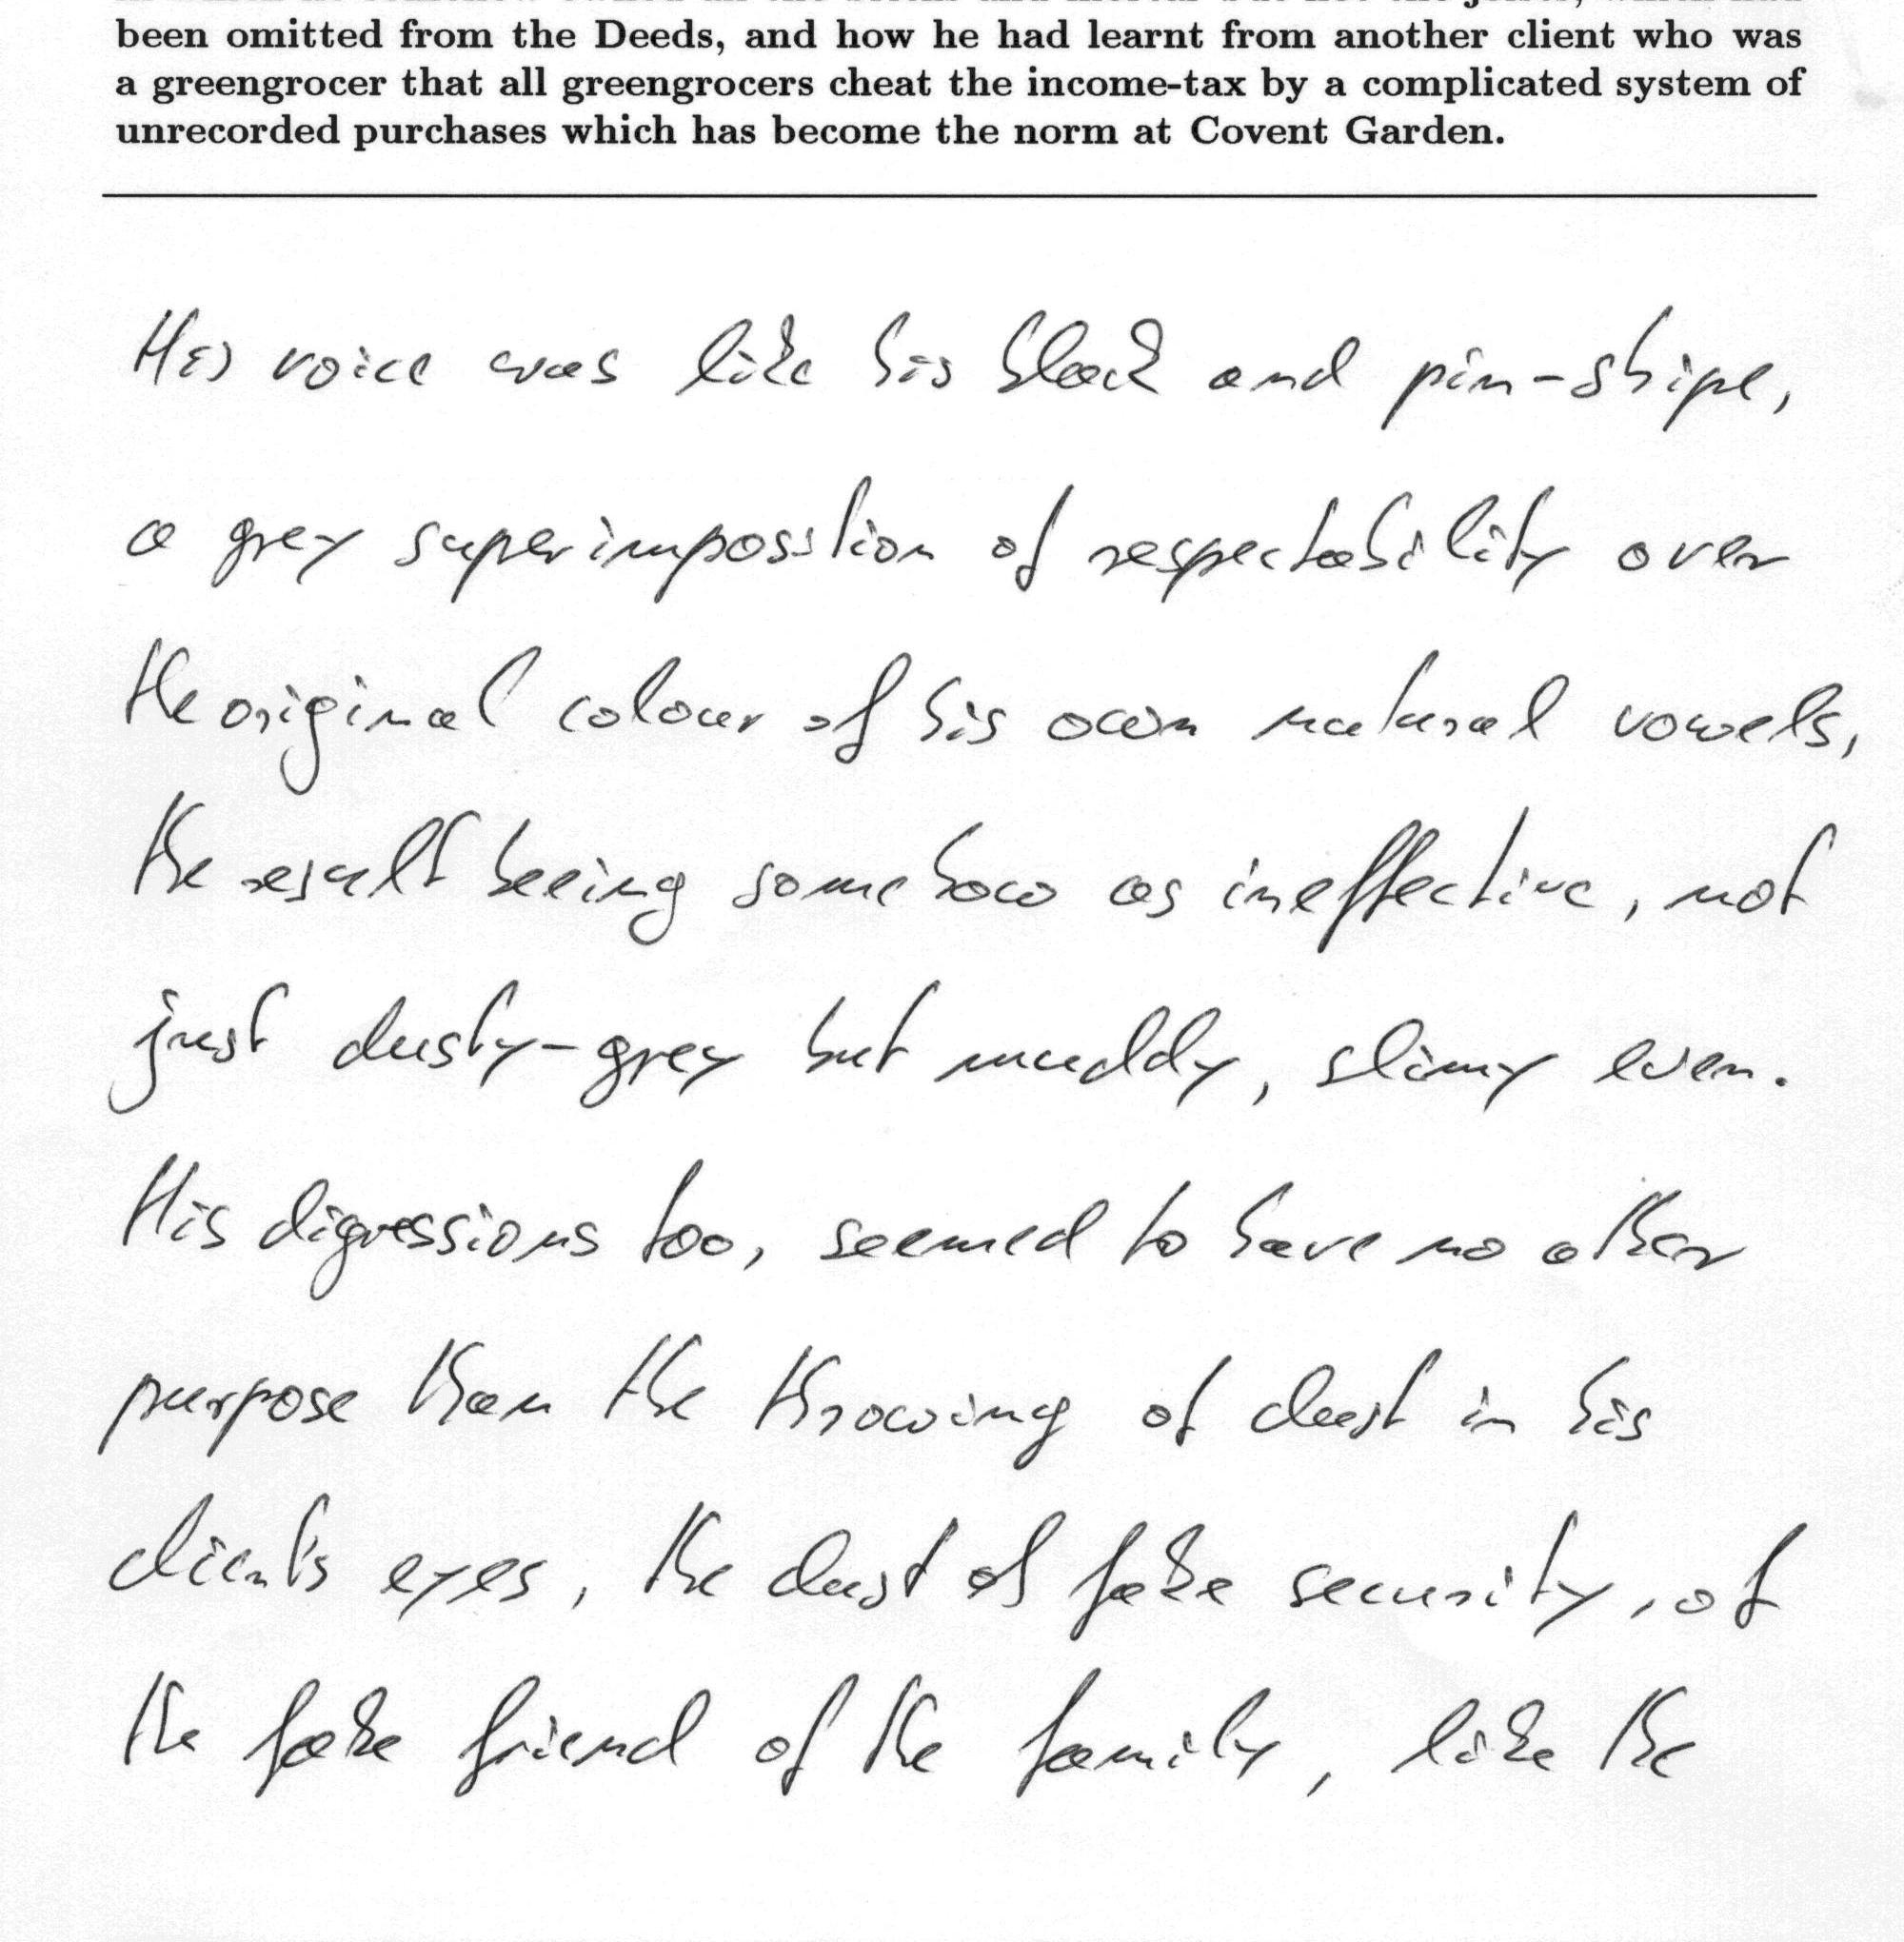 been omitted from the Deeds, and how he had learnt from another client who was
a greengrocer that all greengrocers cheat the income-tax by a complicated system of
unrecorded purchases which has become the norm at Covent Garden.
His voice was like his black and pin-stripe,
a grey superimposition of respectability over
the original colour of his own natural vowels,
the result beeing somehow as ineffective, not
just dusty-grey but muddy, slimy even.
His digressions too, seemed to have no other
purpose than the throwing of dust in his
client's eyes, the dust of fake security, of
the fake friend of the family, like the